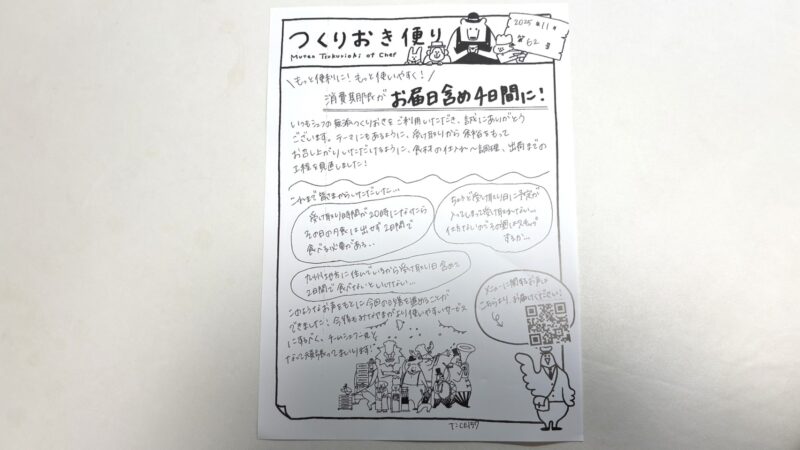 つくりおき便り
Muten Tsukurioki of Chef
2025年11月
第62号
\もっと便利に!もっと使いやすく!/
消費期限が お届日含め4日間に!
いつもシェフの無添つくりおきをご利用いただき、誠にありがとう
ございます。テーマにもあるように、受け取りから余裕をもって
お召し上がりいただけるように、食材の仕入れ〜調理、出荷までの
工程を見直しました!
これまで皆さまからいただいた...
受け取り時間が20時になったら
その日の夕食は出せず2日間で
食べる必要がある...
ちょうど受け取り日に予定が
入ってしまって受け取れない...
仕方ないのでその週はスキップ
するか...
九州地方に住んでいるから受け取り日含めて
2日間で食べないといけない...
このようなお声をもとに今回の日持を進めることが
できました!今後もみなさまがより使いやすいサービス
になるべく、チームシェフ一丸と
なって頑張ってまいります!
メニューに関するお声も
こちらより、お届けください!